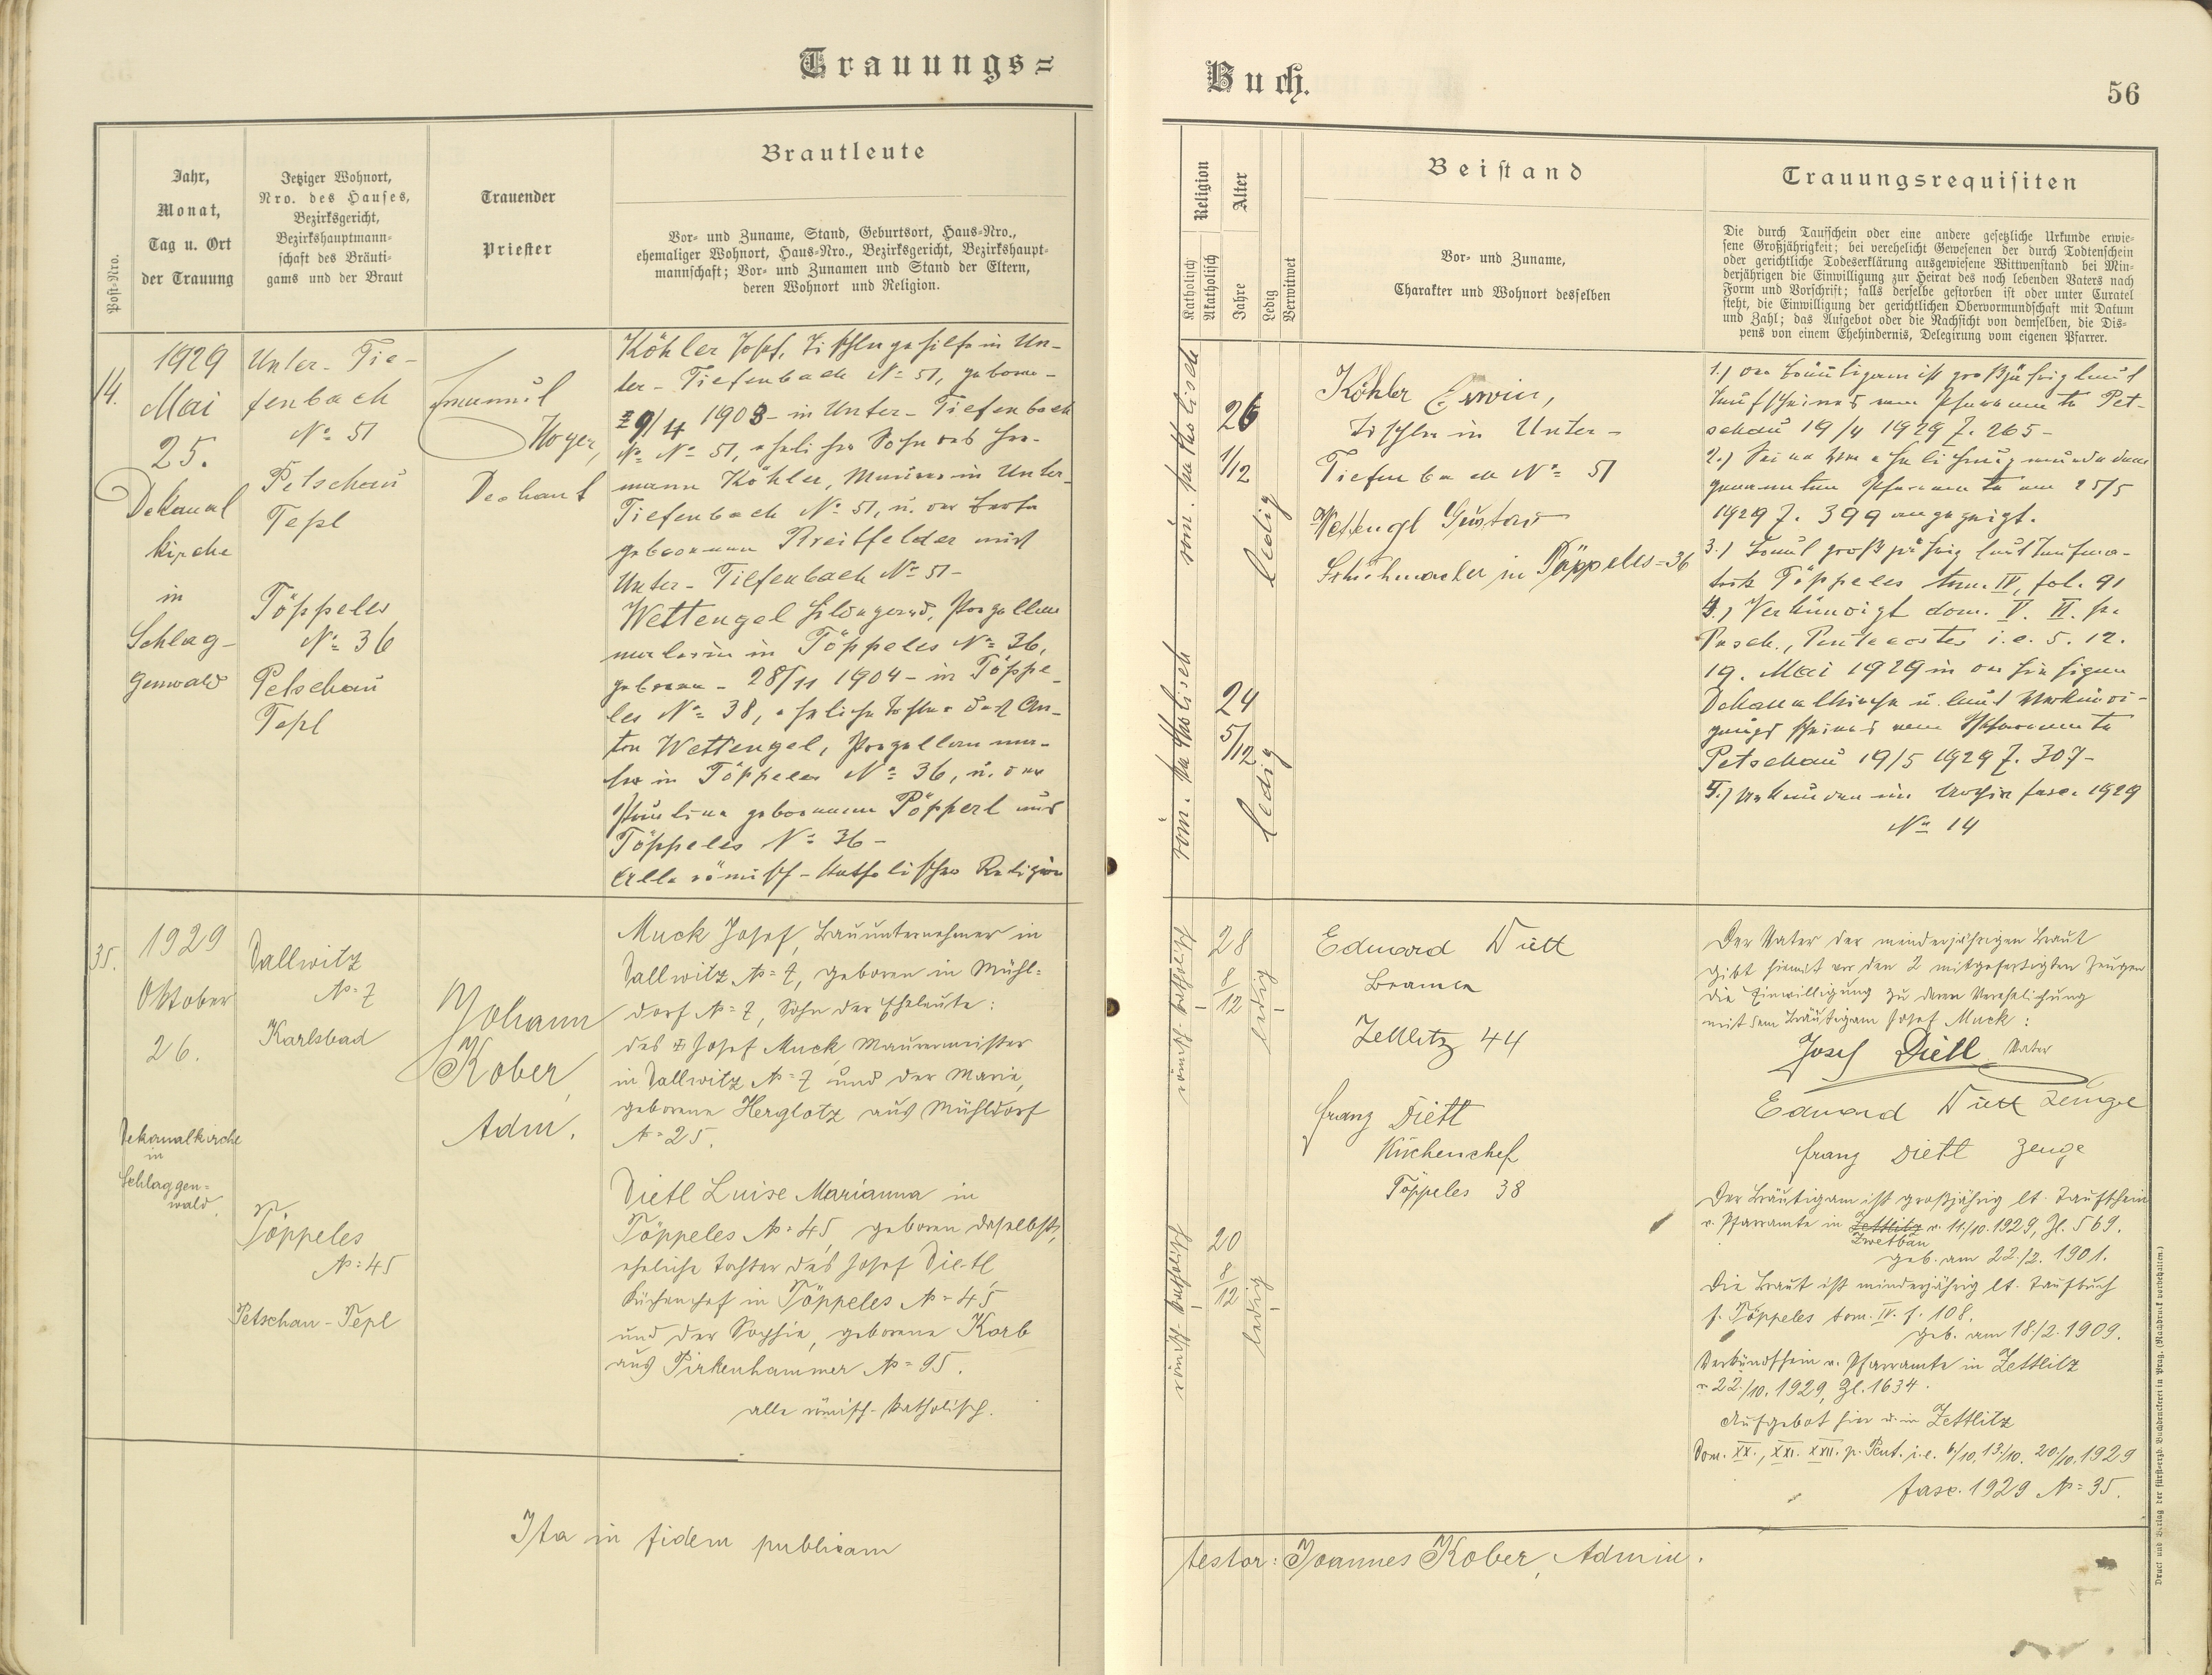 Trauungs=
Brautleute
Post-Nro.
Jahr,
Monat,
Tag u. Ort
der Trauung
Jetziger Wohnort,
Nro. des Hauses,
Bezirksgericht,
Bezirkshauptmann-
schaft des Bräuti-
gams und der Braut
Trauender
Priester
Vor- und Zuname, Stand, Geburtsort, Haus-Nro.,
ehemaliger Wohnort, Haus-Nro., Bezirksgericht, Bezirkshaupt-
mannschaft; Vor- und Zunamen und Stand der Eltern,
deren Wohnort und Religion.
14.
1929
Mai
25.
Dekanal
kirche
in
Schlag-
genwald
Unter-Tie-
fenbach
No. 51
Petschau
Tepl
Töppeles
No. 36
Petschau
Tepl
Emanuel
Hoyer,
Dechant
Köhler Josef, Tischlergehilfe in Un-
ter-Tiefenbach No. 51, geboren-
29/4 1903- in Unter-Tiefenbach
No. 51, ehelicher Sohn des Her-
mann Köhler, Maurers in Unter-
Tiefenbach No. 51, u. der Berta
geborenen Breitfelder aus
Unter-Tiefenbach No. 51-
Wettengel Hildegard, Porzellan
malerin in Töppeles No. 36,
geboren - 28/11 1904 - in Töppe-
les No. 38, eheliche Tochter des An-
ton Wettengel, Porzellanma-
lers in Töppeles No. 36, u. der
Paulina geborenen Pöpperl aus
Töppeles No. 36-
Alle römisch-katholischer Religion
35.
1929
Oktober
26.
Dekanalkirche
in
Schlaggen=
wald.
Dallwitz
No. 7
Karlsbad
Töppeles
No. 45
Petschau-Tepl
Johann
Kober,
Adm.
Muck Josef, Bauunternehmer in
Dallwitz No. 7, geboren in Mühl=
dorf No. 7, Sohn der Eheleute:
des Josef Muck Maurermeister
in Dallwitz No. 7 und der Marie,
geborene Herglotz aus Mühldorf
No. 25.
Dietl Luise Marianna in
Töppeles No. 45, geboren daselbst,
eheliche Tochter des Josef Dietl
Küchenchef in Töppeles No. 45
und der Sophie, geborene Korb
aus Pirkenhammer No. 95.
alle römisch-katholisch.
Ita in fidem publicam
Buch.
56
Religion
Katholisch
Akatholisch
Alter
Jahre
Ledig
Verwitwet
Beistand
Vor- und Zuname,
Charakter und Wohnort desselben
Trauungsrequisiten
Die durch Taufschein oder eine andere gesetzliche Urkunde erwie-
sene Großjährigkeit; bei verehelicht Gewesenen der durch Todtenschein
oder gerichtliche Todeserklärung ausgewiesene Wittwenstand bei Min-
derjährigen die Einwilligung zur Heirat des noch lebenden Vaters nach
Form und Vorschrift; falls derselbe gestorben ist oder unter Curatel
steht, die Einwilligung der gerichtlichen Obervormundschaft mit Datum
und Zahl; das Aufgebot oder die Nachsicht von demselben, die Dis-
pens von einem Ehehindernis, Delegirung vom eigenen Pfarrer.
röm. katholisch
26
1/12
ledig
röm. katholisch
24
5/12
ledig
Köhler Erwin,
Tischler in Unter-
Tiefenbach No. 51
Wettengl Gustav
Schuhmacher in Töppeles=36
1.) Der Bräutigam ist großjährig laut
Taufscheines vom Pfarramte Pet-
schau 19/4 1929 Z. 265-
2.) Seine Verehelichung wurde dem
genannten Pfarramte am 25/5
1929 Z. 399 angezeigt.
3.) Braut großjährig laut Taufma-
trik Töppeles tom. IV, fol. 91
4.) Verkündigt dom. V. VI. p.
Pasch., Pentecostes i. e. 5. 12.
19. Mai 1929 in der hiesigen
Dekanalkirche u. laut Verkündi-
gungsscheines vom Pfarramte
Petschau 19/5 1929 Z. 307-
5.) Urkunden im Archiv fasc. 1929
No. 14
römisch-katholisch
28
8/12
ledig
römisch-katholisch
20
8/12
ledig
Eduard Dietl
Beamte
Zettlitz 44
Franz Dietl
Küchenchef
Töppeles 38
Der Vater der minderjährigen Braut
gibt hiemit vor den 2 mitgefertigten Zeugen
die Einwilligung zu deren Verehelichung
mit dem Bräutigam Josef Muck:
Josef Dietl Vater
Eduard Dietl Zeuge
Franz Dietl Zeuge
Der Bräutigam ist großjährig lt. Taufschein
v. Pfarramte in Zettlitz v. 11./10. 1929, Zl. 569.
Zwetbau
geb. am 22./2. 1901.
Die Braut ist minderjährig lt. Taufbuch
f. Töppeles tom. IV. f. 108.
geb. am 18./2. 1909.
Verkündschein v. Pfarramte in Zettlitz
v. 22./10. 1929, Zl. 1634.
Aufgebot hier u. in Zettlitz
Dom. XX., XXI. XXII. p. Pent. i. e. 6./10. 13./10. 20./10. 1929
fasc. 1929 No. 35.
testor: Joannes Kober, Admin.
Druck und Verlag der fürst-erzb. Buchdruckerei in Prag. (Nachdruck vorbehalten.)